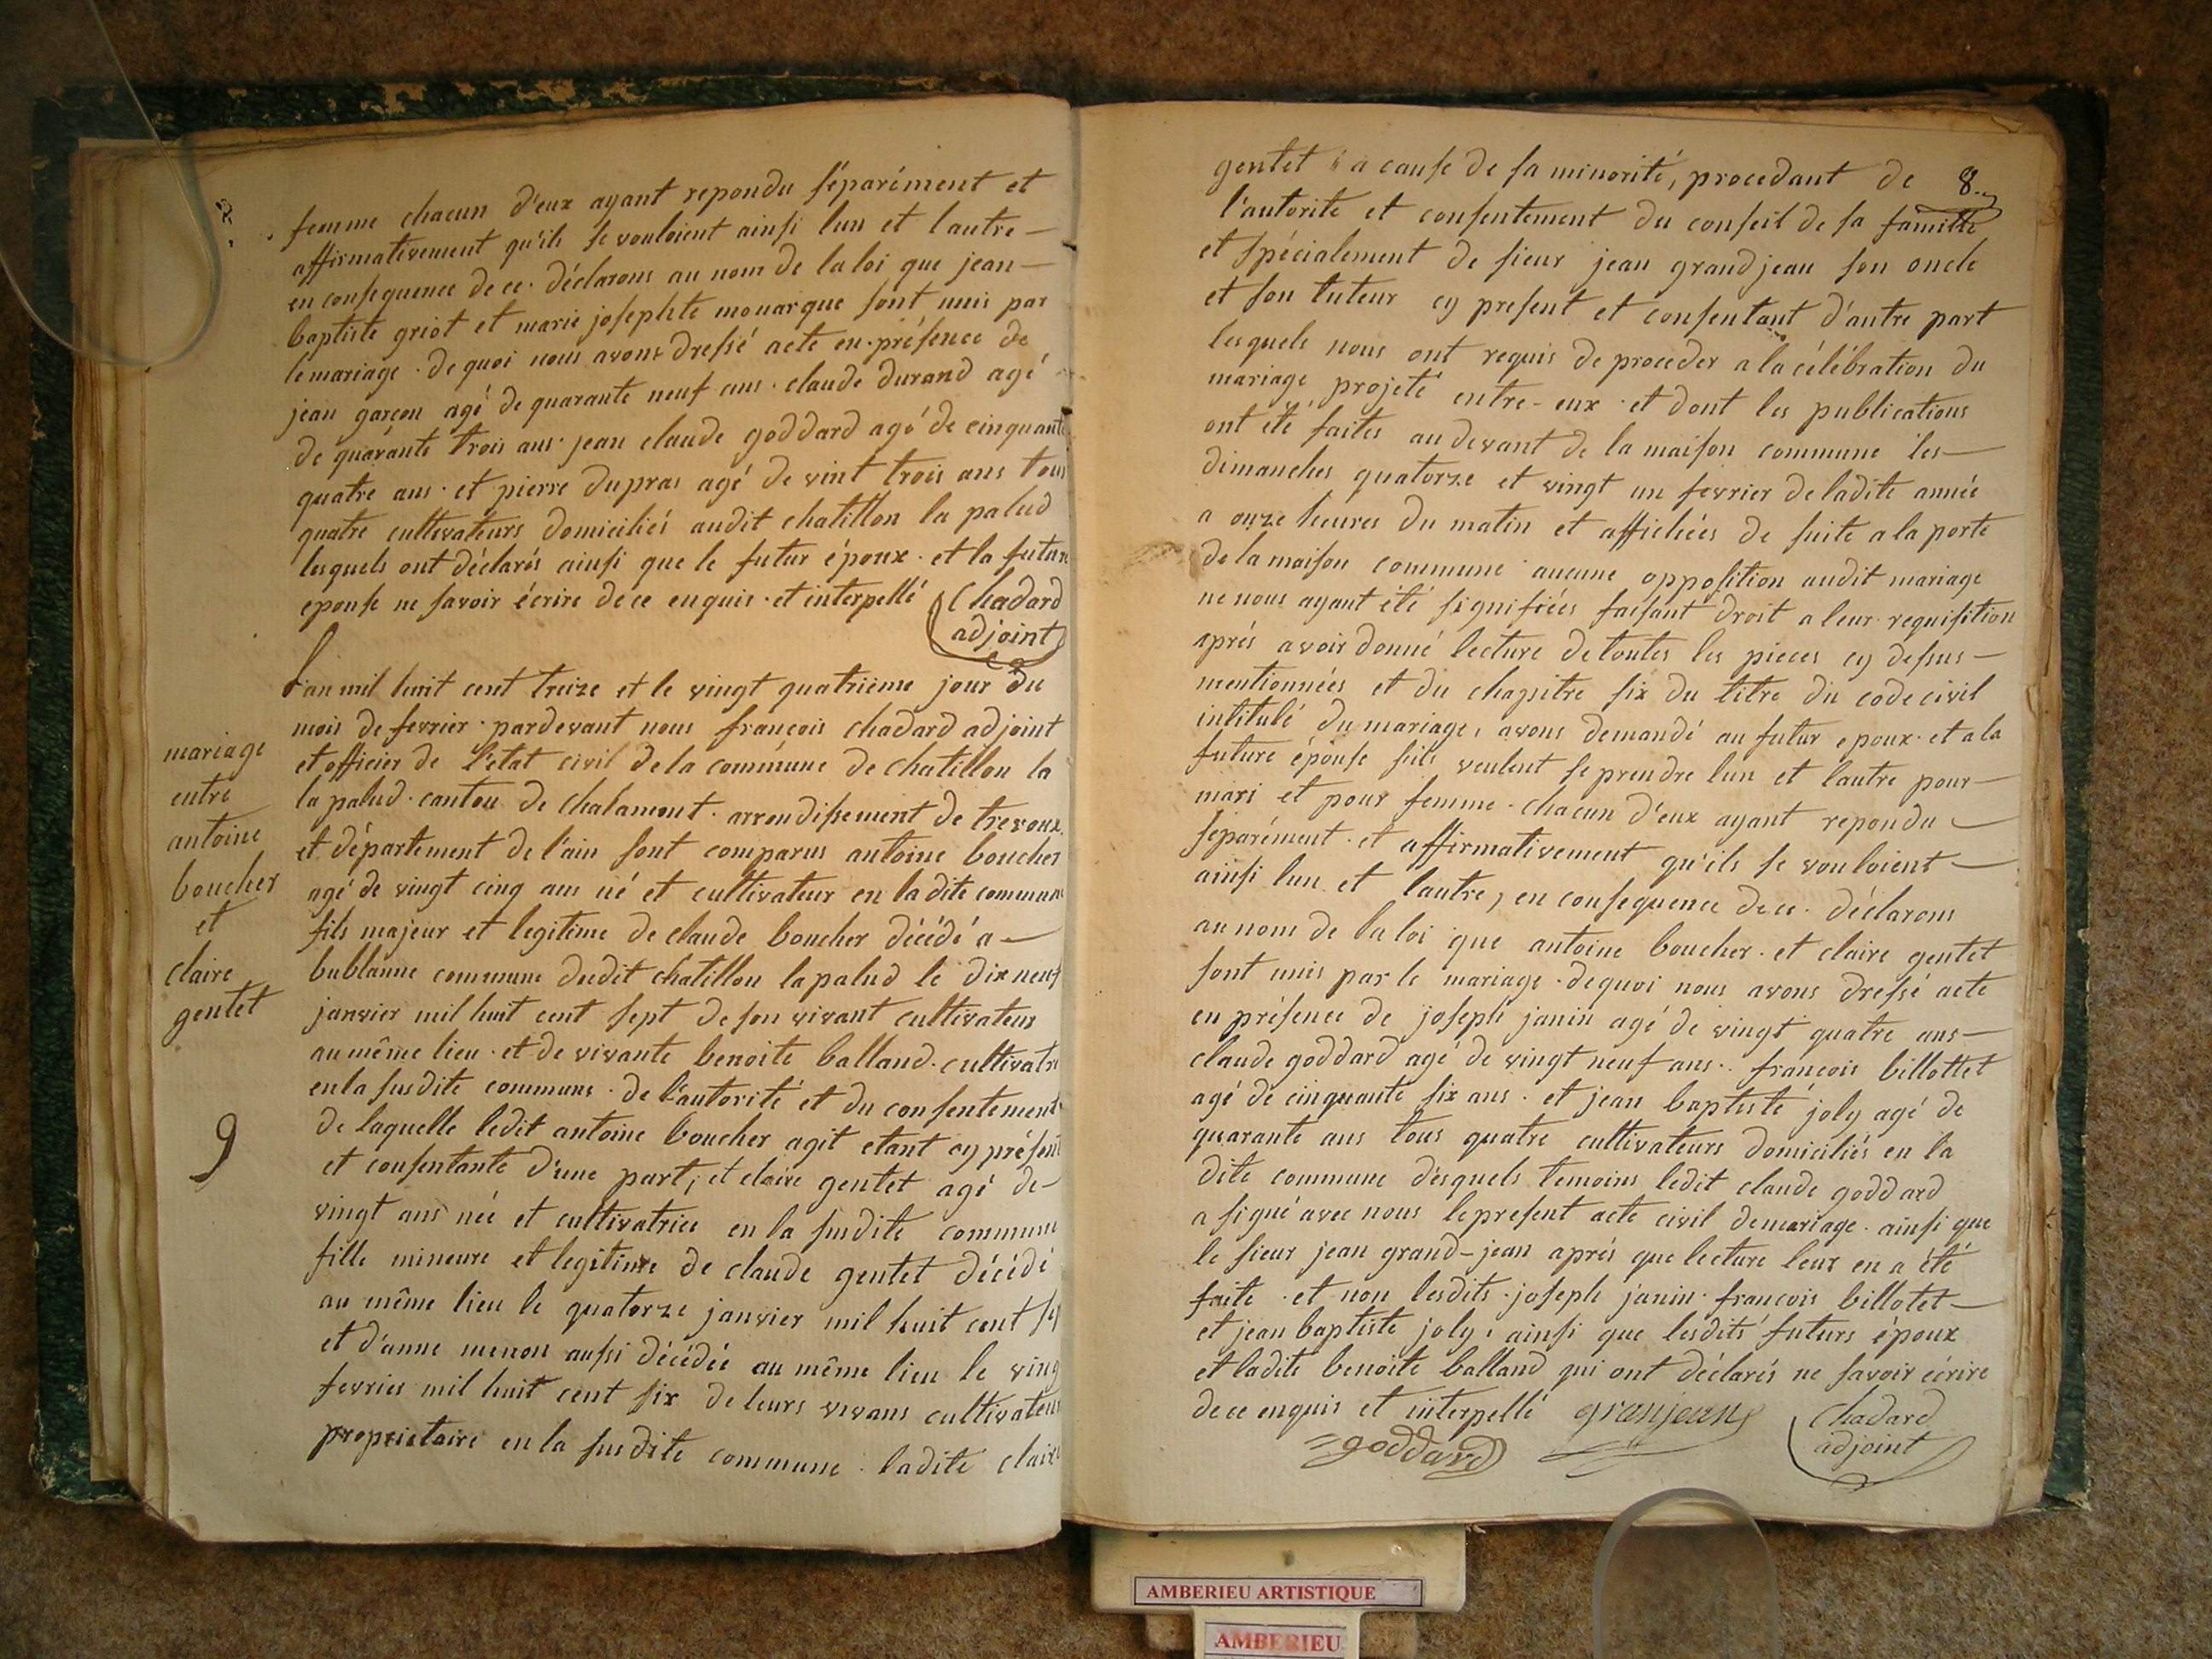 femme chacun d'eux ayant repondu séparément et
affirmativement qu'ils se vouloient ainsi lun et lautre –
en consequence de ce. déclarons au nom de la loi que jean –
baptiste griot et marie josephte monarque sont unis par
le mariage. de quoi nous avons dressé acte en présence de
jean garçon agé de quarante neuf ans. claude durand agé
de quarante trois ans. jean claude goddard agé de cinquante
quatre ans. et pierre dupras agé de vint trois ans tous
quatre cultivateurs domiciliés audit chatillon la palud
lesquels ont déclarés ainsi que le futur époux. et la future
epouse ne savoir écrire de ce enquis. et interpellé
Chadard
adjoint
L'an mil huit cent treize et le vingt quatrième jour du
mois de fevrier. pardevant nous françois chadard adjoint
et officier de l'etat civil de la commune de chatillon la
la palud. canton de chalamont. arrondissement de trevoux.
et département de l'ain sont comparus antoine boucher
agé de vingt cinq ans né et cultivateur en la dite commune
fils majeur et legitime de claude boucher décédé a –
bublanne commune dudit chatillon la palud le dix neuf
janvier mil huit cent sept de son vivant cultivateur
au même lieu. et de vivante benoite balland. cultivatr
en la susdite commune. de l'autorité et du consentement
de laquelle ledit antoine boucher agit etant cy présent
et consentante d'une part, et claire gentet agé de –
vingt ans née et cultivatrice en la susdite commune
fille mineure et legitime de claude gentet décédé
au même lieu le quatorze janvier mil huit cent
et d'anne menon aussi décédée au même lieu le ving
fevrier mil huit cent six de leurs vivans cultivateur
proprietaire en la susdite commune. ladite claire
mariage
entre
antoine
boucher
et
claire
gentet
9
8
gentet a cause de sa minorité, procedant de
l'autorité et consentement du conseil de sa famille
et spécialement de sieur jean grandjean son oncle
et son tuteur cy present et consentant d'autre part
lesquels nous ont requis de proceder a la célébration du
mariage projeté entre-eux. et dont les publications
ont été faites au devant de la maison commune les –
dimanches quatorze et vingt un fevrier de ladite année
a onze heures du matin et affichées de suite a la porte
de la maison commune aucune opposition audit mariage
ne nous ayant été signifiées faisant droit a leur requisition
après avoir donné lecture de toutes les pieces cy dessus –
mentionnées et du chapitre six du titre du code civil
intitulé du mariage, avons demandé au futur epoux. et a la
future épouse sils veulent se prendre lun et lautre pour –
mari et pour femme. chacun d'eux ayant repondu –
séparément. et affirmativement qu'ils se vouloient –
ainsi lun et lautre, en consequence de ce. déclarons
au nom de la loi que antoine boucher. et claire gentet
sont unis par le mariage. de quoi nous avons dressé acte
en présence de joseph janin agé de vingt quatre ans –
claude goddard agé de vingt neuf ans.. françois billottet
agé de cinquante six ans. et jean baptiste joly agé de
quarante ans tous quatre cultivateurs domiciliés en la
dite commune desquels temoins ledit claude goddard
a signé avec nous le present acte civil de mariage. ainsi que
le sieur jean grand-jean après que lecture leur en a été
faite. et non lesdits. joseph janin. francois billotet –
et jean baptiste joly, ainsi que lesdits futurs époux
et ladite benoite balland qui ont déclarés ne savoir écrire
de ce enquis et interpellé granjean
Chadard
adjoint
goddard
AMBERIEU ARTISTIQUE
AMBERIEU